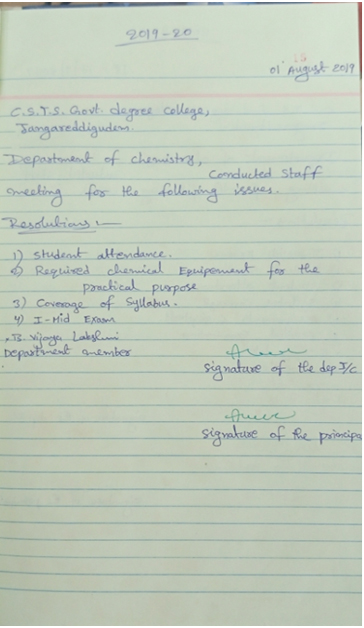 2019-20
01 August 2019
C.S.T.S. Govt. degree college,
Jangareddigudem.
Department of chemistry,
Conducted Staff
meeting for the following issues.
Resolutions :-
1) Student attendance.
2) Required chemical Equipement for the
practical purpose
3) Coverage of Syllabus.
4) I-Mid Exam
B. Vijaya Lakshmi
Department member
signature of the dep I/c
signature of the principa